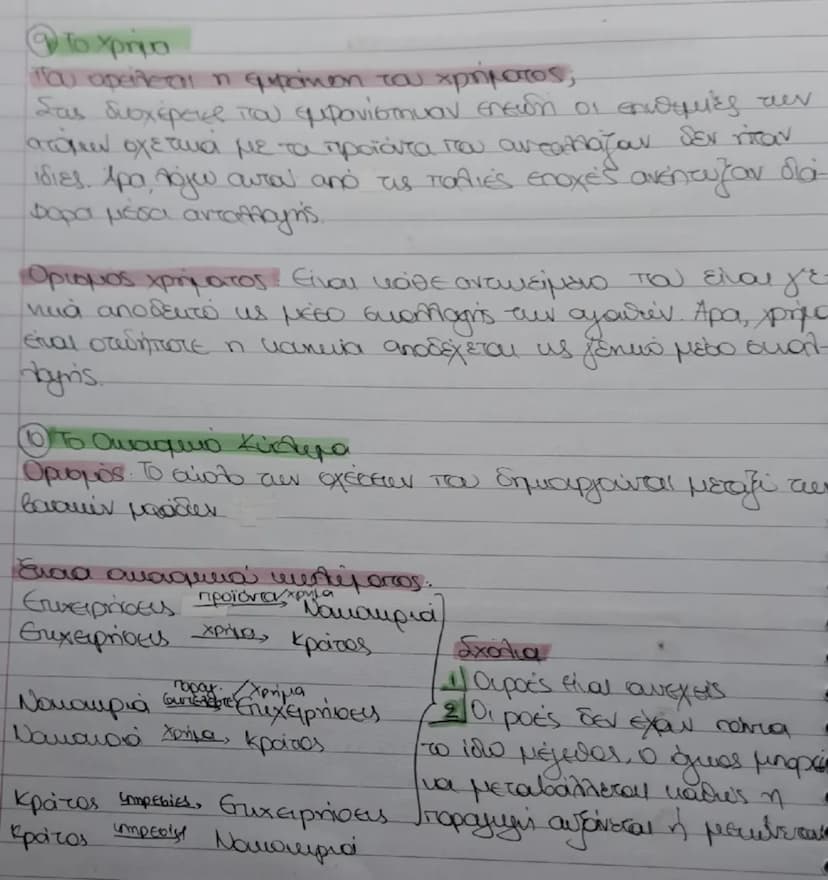 9) Το χρήμα
Που οφείλεται η εμφάνιση του χρήματος;
Στις δυσχέρειες που εμφανίστηκαν επειδή οι επιθυμίες των
ατόμων σχετικά με τα προϊόντα που αντάλλαζαν δεν ήταν
ίδιες. Άρα, λόγω αυτού από τις παλιές εποχές ανέπτυξαν διά-
φορα μέσα ανταλλαγής.
Ορισμός χρήματος: Είναι κάθε αντικείμενο που είναι γε-
νικά αποδεκτό ως μέσο συναλλαγής των αγαθών. Άρα, χρήμα
είναι οτιδήποτε η κοινωνία αποδέχεται ως γενικό μέσο συναλ-
λαγής.
10) Το Οικονομικό Κύκλωμα
Ορισμός: Το σύνολο των σχέσεων που δημιουργούνται μεταξύ των
βασικών μονάδων
Έννοια οικονομικού κυκλώματος.
Επιχειρήσεις προϊόντα/χρήμα → Νοικοκυριά
Επιχειρήσεις χρήμα → Κράτος
Νοικοκυριά παραγ. συντελεστές/χρήμα → Επιχειρήσεις
Νοικοκυριά χρήμα → Κράτος
Κράτος υπηρεσίες → Επιχειρήσεις
Κράτος υπηρεσίες Νοικοκυριά
Σχόλια
1) Οι ροές είναι συνεχείς
2) Οι ροές δεν έχουν πάντα
το ίδιο μέγεθος, ο όγκος μπορεί
να μεταβάλλεται καθώς η
παραγωγή αυξάνεται ή μειώνεται